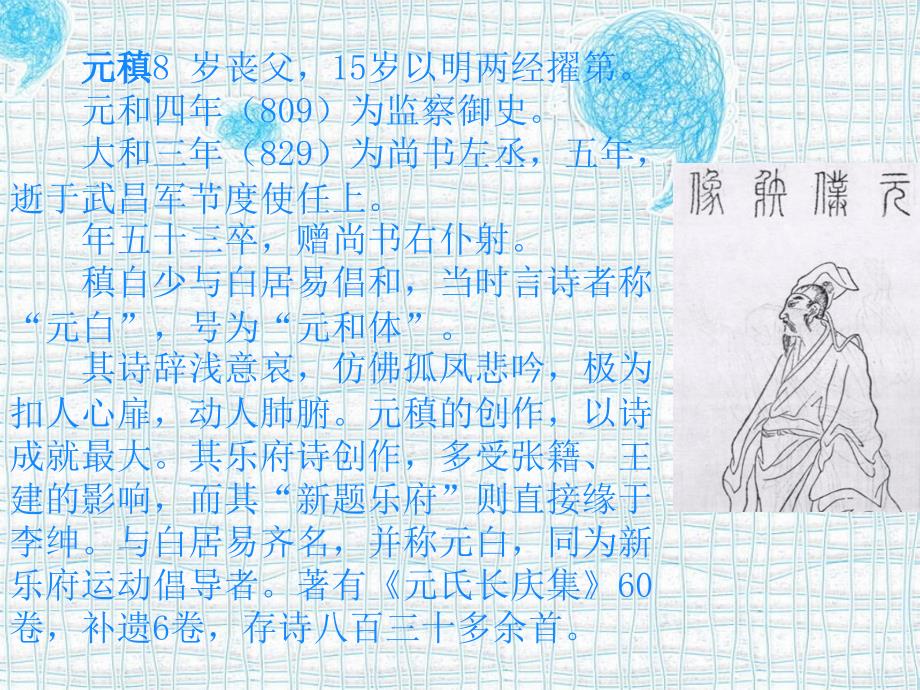 元稹8 岁丧父，15岁以明两经擢第。
元和四年（809）为监察御史。
大和三年（829）为尚书左丞，五年，
逝于武昌军节度使任上。
年五十三卒，赠尚书右仆射。
稹自少与白居易倡和，当时言诗者称
“元白”，号为“元和体”。
其诗辞浅意哀，仿佛孤凤悲吟，极为
扣人心扉，动人肺腑。元稹的创作，以诗
成就最大。其乐府诗创作，多受张籍、王
建的影响，而其“新题乐府”则直接缘于
李绅。与白居易齐名，并称元白，同为新
乐府运动倡导者。著有《元氏长庆集》60
卷，补遗6卷，存诗八百三十多余首。
元僕射像